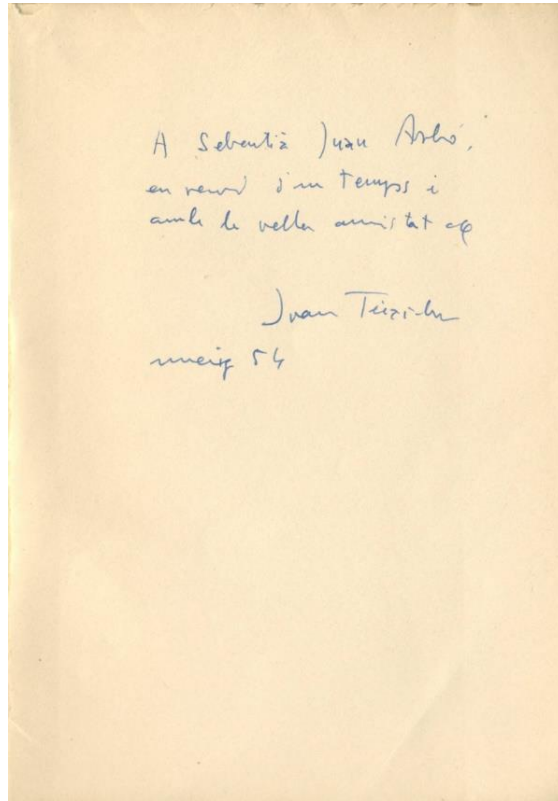 A Sebastià Juan Arbó,
en record d'un temps i
amb la vella amistat de
Joan Teixidor
març 54